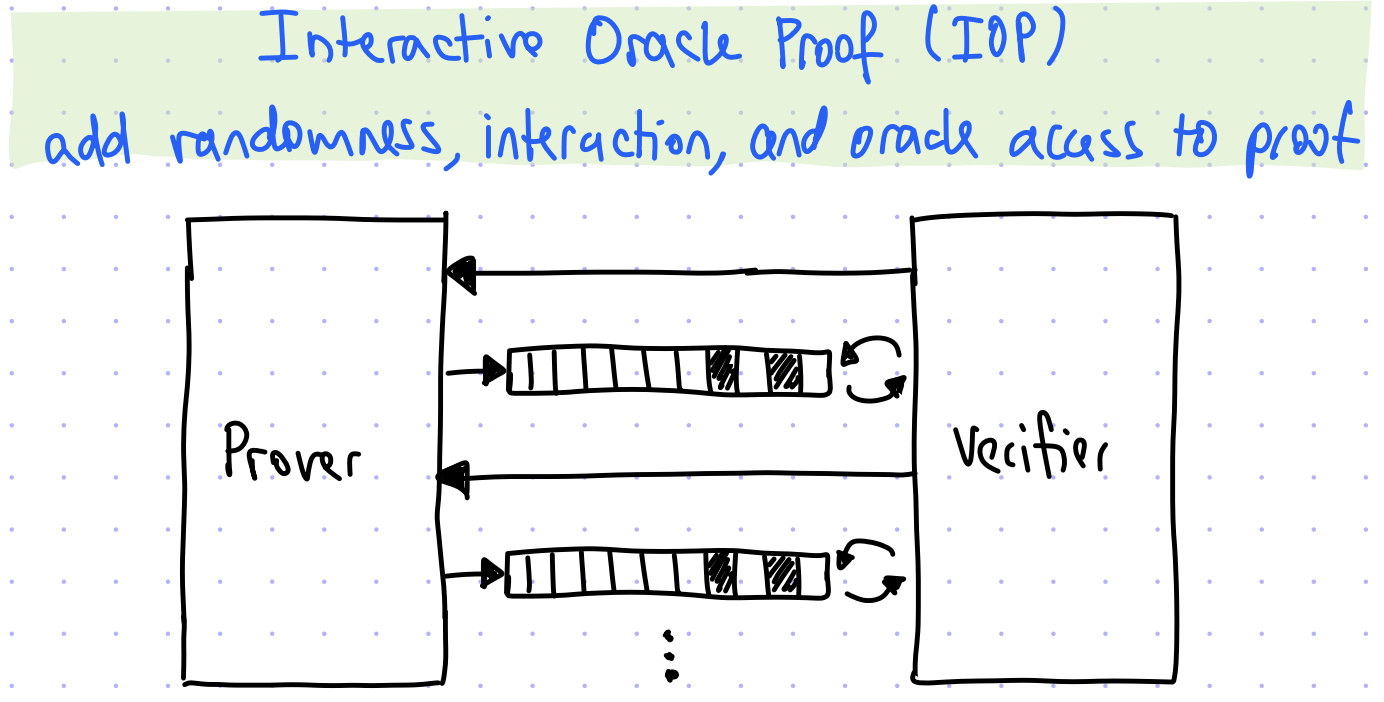 Interactive Oracle Proof (IOP)
add randomness, interaction, and oracle access to proof
Prover
Verifier